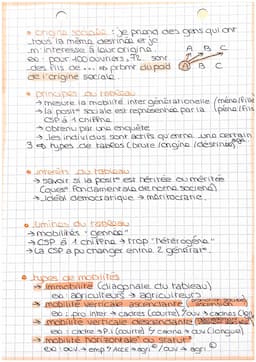 • origine sociale : je prend des gens qui ont
tous la même destinée et je
m'interesse à leur origine. A B C
ex : pour 100 ouvriers, 72 sont
des fils de ... → prbmt du poid A B C
de l'origine sociale.
• principes du tableau
→ mesure la mobilité intergénérationelle
→ la posit° sociale est représentée par la
CSP à 1 chiffre
→ obtenu par une enquête
→ les individus sont actifs
3 types de tables (brute/origine/destinée)
• interêts du tableau
→ savoir si la posit° est héritée ou méritée
(quest° fondamentale de norme sociale)
→ idéal démocratique → méritocratie.
• limites du tableau
→ mobilités "genrée"
→ CSP à 1 chiffre → trop "hétérogène"
→ La CSP a pu changer entre 2 générat°
• types de mobilités
→ immobilité (diagonale du tableau)
ex : agriculteurs → agriculteurs
→ mobilité verticale ascendante
ex : pro inter → cadres (courte) / ouv → cadres
→ mobilité verticale descendante
ex : cadre → P.i (courte) / cadre → ouv (longue)
→ mobilité horizontale ou statut
ex : ouv → emp / ACCE → agri / ouv → agri